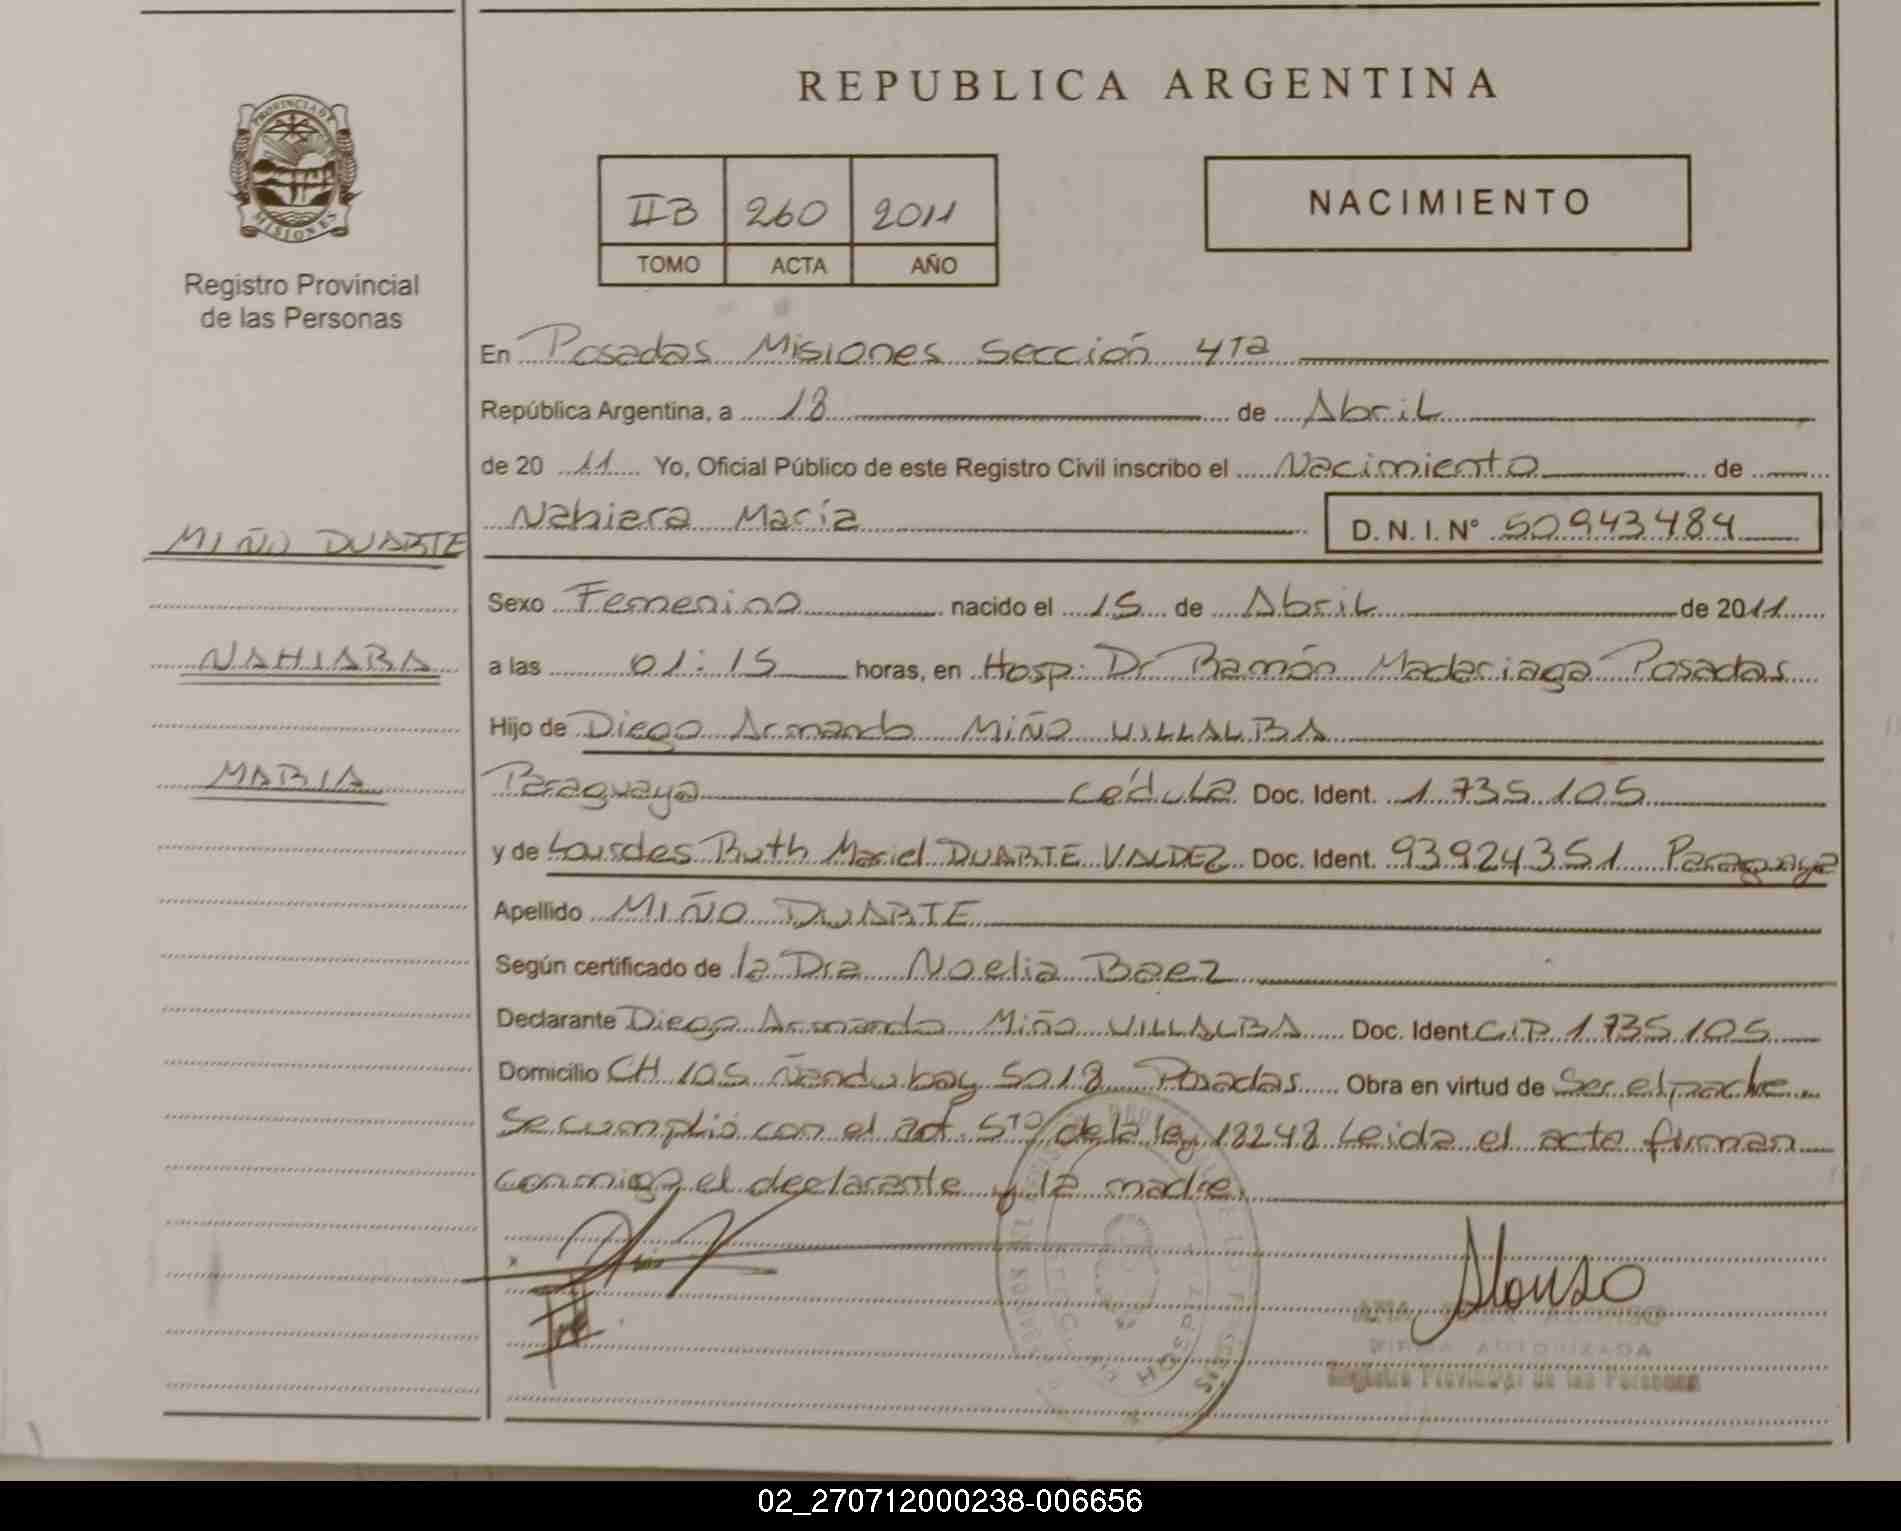 REPUBLICA ARGENTINA
PROVINCIA DE
MISIONES
Registro Provincial
de las Personas
IIB 260 2011
TOMO ACTA AÑO
NACIMIENTO
En Posadas Misiones Sección 4ta
República Argentina, a 18 de Abril
de 2011 Yo, Oficial Público de este Registro Civil inscribo el Nacimiento de
MIÑO DUARTE
Nahiara María D.N.I. Nº 50943484
Sexo Femenino nacido el 15 de Abril de 2011
NAHIARA
a las 01:15 horas, en Hosp. Dr Ramón Madariaga Posadas
Hijo de Diego Armando MIÑO VILLALBA
MARIA
Paraguaya cédula Doc. Ident. 1.735.105
y de Lourdes Ruth Mariel DUARTE VALDEZ Doc. Ident. 93924351 Paraguaya
Apellido MIÑO DUARTE
Según certificado de la Dra Noelia Baez
Declarante Diego Armando Miño VILLALBA Doc. Ident. C.I.P. 1.735.105
Domicilio CH 105 Ñandubay 5018 Posadas Obra en virtud de Ser el padre
Se cumplió con el art. 5to de la ley 18248 Leida el acta firman
conmigo el declarante y la madre.
Alonso
FIRMA AUTORIZADA
Registro Provincial de las Personas
02_270712000238-006656